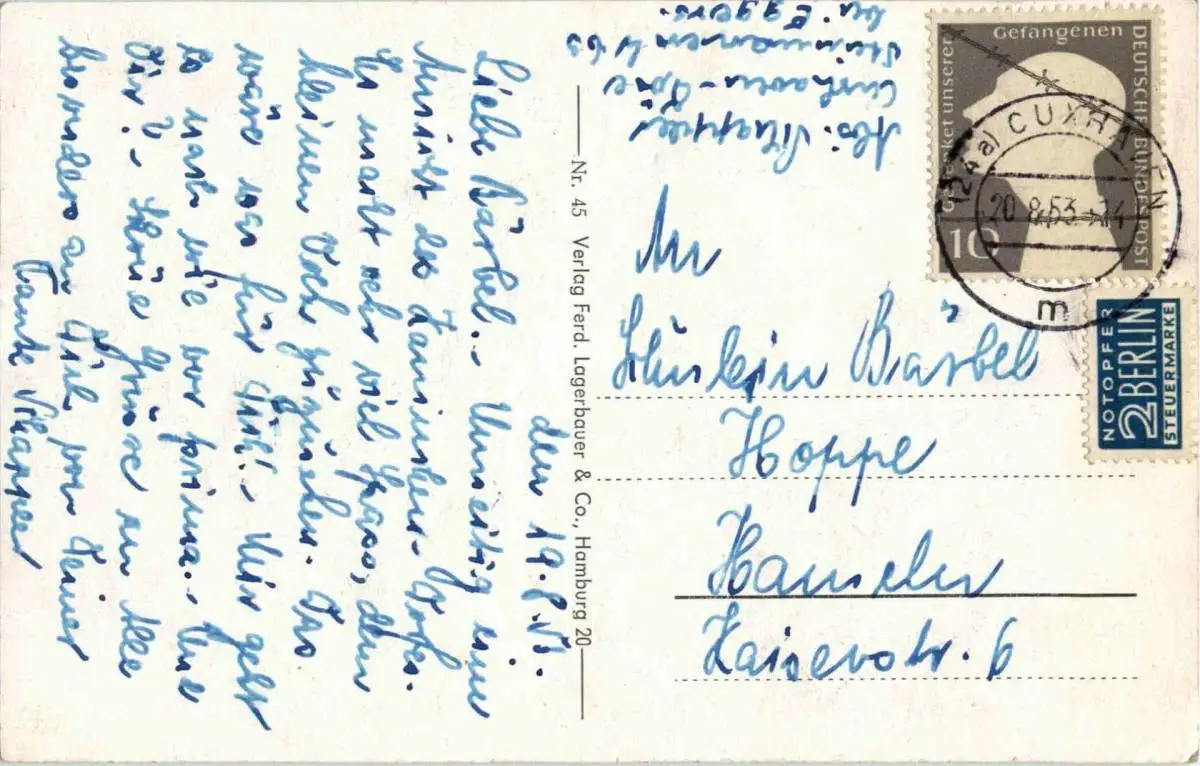 den 19.8.53.
Liebe Bärbel.- Umseitig eine
Ansicht des Kaninchen-Dorfes.
Es macht sehr viel Spass, dem
kleinen Volk zuzusehen. Das
wäre was für Dich!- Mir geht
es nach wie vor prima.- Und
Dir?- Schöne Grüsse an Alle
besonders an Dich von Deiner
Tante
Nr. 45 Verlag Ferd. Lagerbauer & Co., Hamburg 20
Abs.
Cuxhaven-
bei Eggers.
An
Bärbel
Hoppe
Hameln
Kaiserstr. 6
Gedenket unserer Gefangenen
DEUTSCHE BUNDESPOST
10
(24a) CUXHAVEN
20.8.53
m
NOTOPFER
2 BERLIN
STEUERMARKE